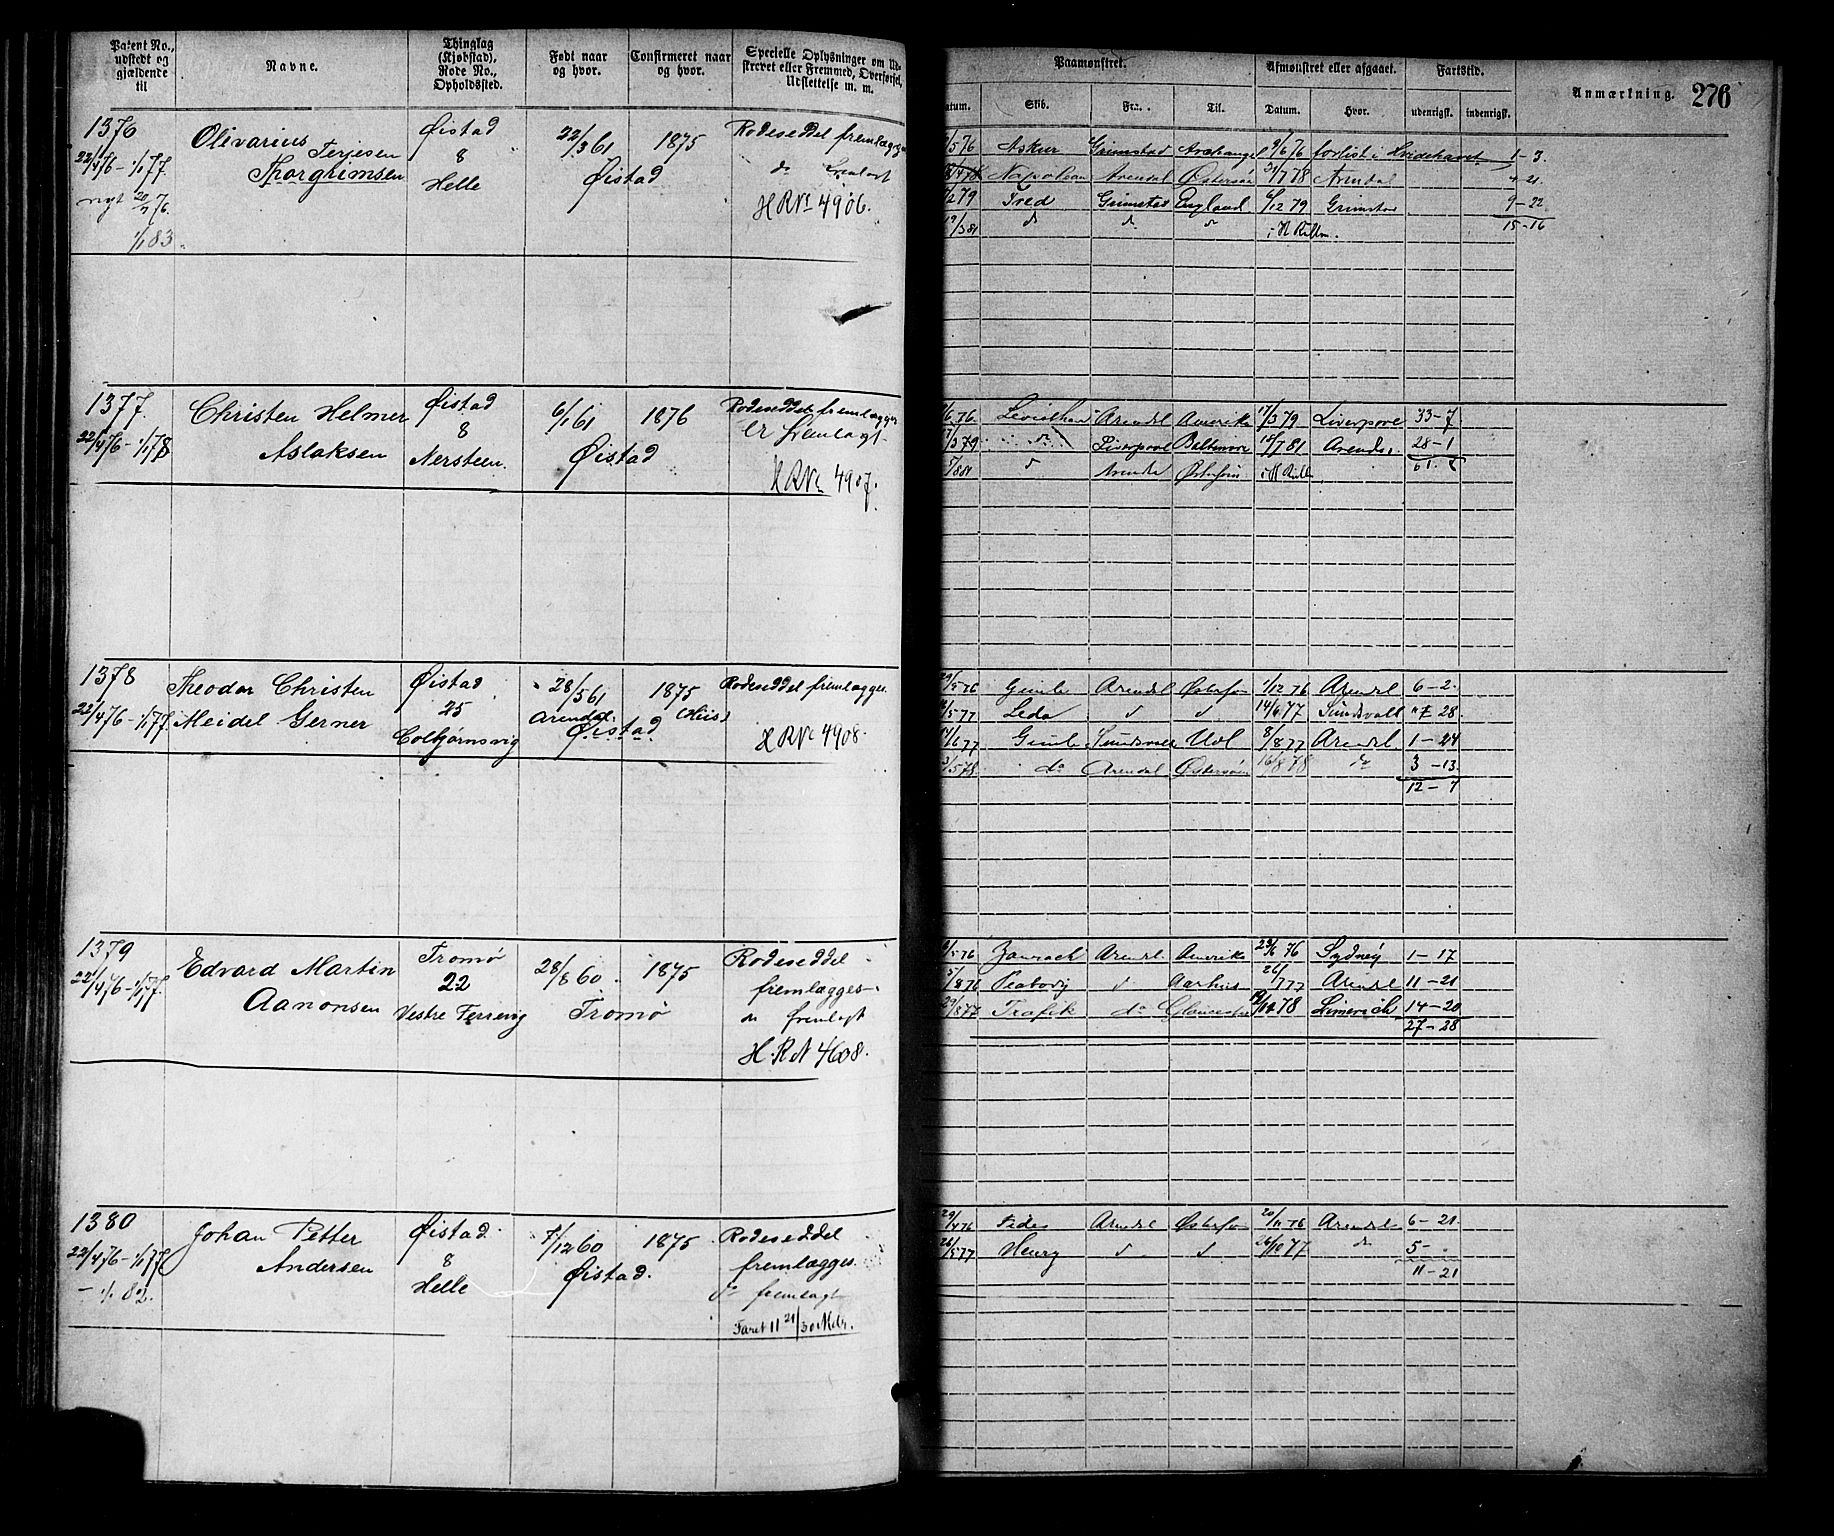 Patent No., udstedt og gjældende til
Navne.
Thinglag (Kjøbstad), Rode No., Opholdssted.
Født naar og hvor.
Confirmeret naar og hvor.
Specielle Oplysninger om Udskrevet eller Fremmed, Overførsel, Udslettelse m. m.
Paamønstret.
Afmønstret eller afgaaet.
Fartstid.
Anmærkning.
276
Datum.
Skib.
Fra.
Til.
Datum.
Hvor.
udenrigsk.
indenrigsk.
1376
22/4 76 - 1/1 77.
nyt 20/7 76.
1/1 83.
Olivarius Terjesen
Thorgrimsen
Øistad
8
Helle
22/3 61
1875
Øistad
Rodeseddel fremlægges
do fremlagt
H R No 4906.
/5 76 Askur Grimstad Archangel 9/6 76 forlist i Hvidehavet 1-3.
/4 78 Napoleon Arendal Østersøen 31/7 78 Arendal 4-21
/2 79 Fred Grimstad England 6/12 79 Grimstad 9-22
/3 81 do do do i H Rullen. 15-16
1377.
22/4 76 - 1/1 78
Christen Helmer
Aslaksen
Øistad
8
Nersteen.
6/1 61
1876
Øistad
Rodeseddel fremlægges
er fremlagt
H R No 4907.
/6 76 Leviathan Arendl Amerika 17/3 79 Liverpool 33-7
17/3 79 do Liverpool Baltimore 18/7 81 Arendal 28-1
/8 81 do Arendal Østersøen i H Rullen 61.8
1378
22/4 76 - 1/1 77.
Theodor Christen
Meidel Gerner
Øistad
25
Colbjørnsvig
28/5 61
Arendal.
1875
(Hiis)
Øistad
Rodeseddel fremlægges.
H R No 4908.
29/5 76 Gimle Arendl Østersøen 1/12 76 Arendl 6-2.
/5 77 Leda do do 14/6 77 Sundsvall " 28.
14/6 77 Gimle Sundsvall Hul 8/8 77 Arendl 1-24
3/5 78 do Arendal Østersøen 16/8 78 do 3-13.
12-7
1379
22/4 76 - 1/1 77.
Edvard Martin
Aanonsen
Tromø
22
Vestre Terrevig
28/8 60.
1875
Tromø
Rodeseddel
fremlægges
do fremlagt
H. R N 4608.
/5 76 Arendl Amerika 23/6 76 Sydney 1-17
5/8 76 Peabody do Aarhus 26/7 77 Arendl 11-21
29/8 77 Trafik do Glaucester 78 Limerick 14-20
27-28
1380
22/4 76 - 1/1 77
- 1/1 82.
Johan Petter
Andersen
Øistad.
8
Helle
7/12 60
1875
Øistad.
Rodeseddel
fremlægges.
do fremlagt
Faret 11 21/30 Mdr.
29/4 76 Fides Arendl Østersøen 20/11 76 Arendl 6-21.
26/5 77 Henry do do 26/10 77 do 5-.
11-21